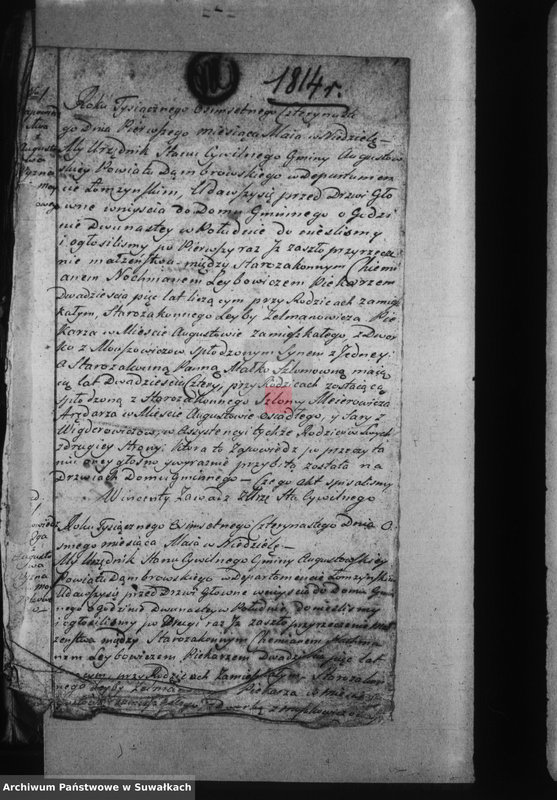 1814 r.
Roku Tysiącznego Osimsetnego Czternaste
go Dnia Pierwszego miesiąca Maia w Niedzielę –
My Urzędnik Stanu Cywilnego Gminy Augustow
skiey Powiatu Dąmbrowskiego w Departamen
cie Łomzynskim, Udawszysię przed Drzwi Gło
wne wniyscia do Domu Gminnego o Godzi
nie Dwunastey w Południe donieslismy
i ogłosilismy po Pierwszy raz Jż zaszło przyrzecze
nie małżeństwa między Starozakonnym Chiemi
anem Nochmanem Leybowiczem Piekarzem
Dwadzieścia pięc lat liczącym przy Rodzicach zamięsz
kałym, Starozakonnego Leyby Zelmanowicza Pie
karza w Mieście Augustowie zamięszkałego, z Dwor
ko z Mowszowiczow spłodzonym Synem z Jedney:
a Starozakonną Panną Małko Szlomowną maią
cą lat Dwadzieścia cztery, przy Rodzicach zostaiącą
spłodzoną z Starozakonnego Szlomy Meierowicza
Arędarza w Mieście Augustowie osiadłego, y Sary z
Wigderowiczow, w Assystencyi tychże Rodziców Swych
z drugiey Strony. Ktora to Zapowiedź po przeczyta
niu oney głośno y wyraźnie przybitą została na
Drzwiach Domu Gminnego – Czego akt spisalismy
Wincenty Zawadz Urze Sta Cywilnego
Roku Tysiącznego Osimsetnego Czternastego Dnia O
smego miesiąca Maia w Niedzielę –
My Urzędnik Stanu Cywilnego Gminy Augustowskiey
Powiatu Dąmbrowskiego w Departamencie Łomzyńskim
Udawszysię przed Drzwi Głowne wniyscia do Domu Gmin
nego o godzinie Dwunastey w Południe, donieslismy
i ogłosilismy po Drugi raz Jż zaszło przyrzeczenie mał
żeństwa między Starozakonnym Chiemianem Nochma
nem Leybowiczem Piekarzem Dwadzieścia pięc lat
przy Rodzicach zamięszkałym Starozakon
nego Leyby Zelma Piekarza w Mieście
Archiwum Państwowe w Suwałkach